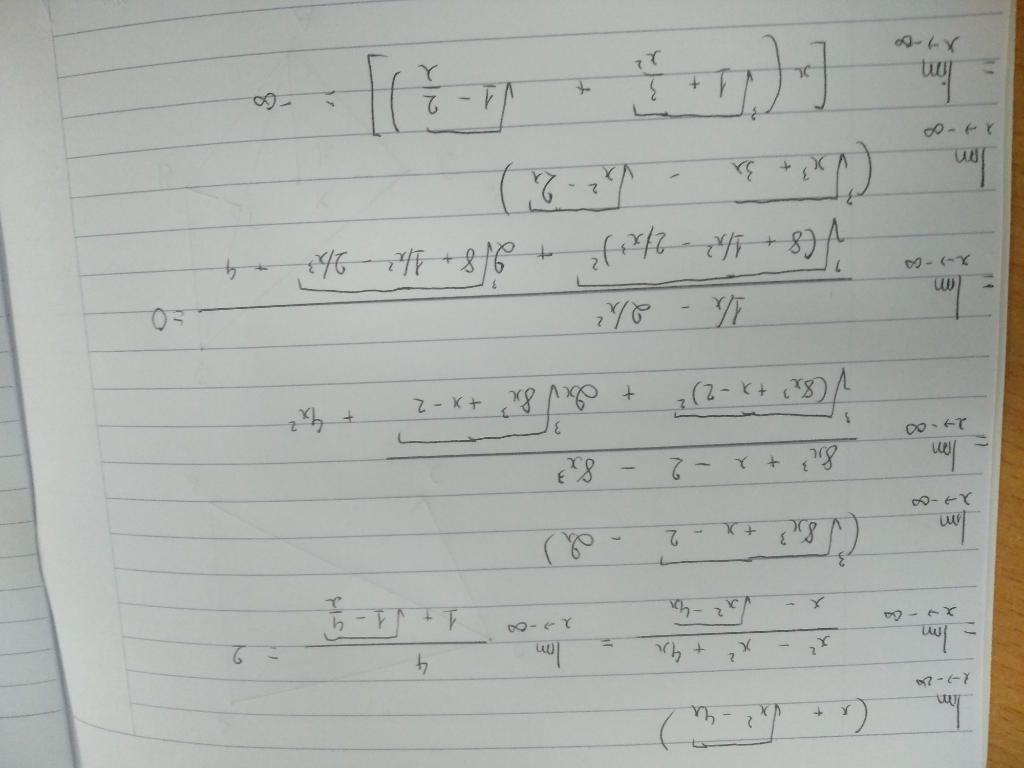 lim x→-∞ (x + √(x² - 4x))
= lim x→-∞ (x² - x² + 4x)/(x - √(x² - 4x)) = lim x→-∞ 4/(1 + √(1 - 4/x)) = 2
lim x→-∞ (³√(8x³ + x - 2) - 2x)
= lim x→-∞ (8x³ + x - 2 - 8x³)/(³√(8x³ + x - 2)² + 2x ³√(8x³ + x - 2) + 4x²)
= lim x→-∞ (1/x - 2/x²)/(³√(8 + 1/x² - 2/x³)² + 2 ³√(8 + 1/x² - 2/x³) + 4) = 0
lim x→-∞ (³√(x³ + 3x) - √(x² - 2x))
= lim x→-∞ [x(³√(1 + 3/x²) + √(1 - 2/x))] = -∞